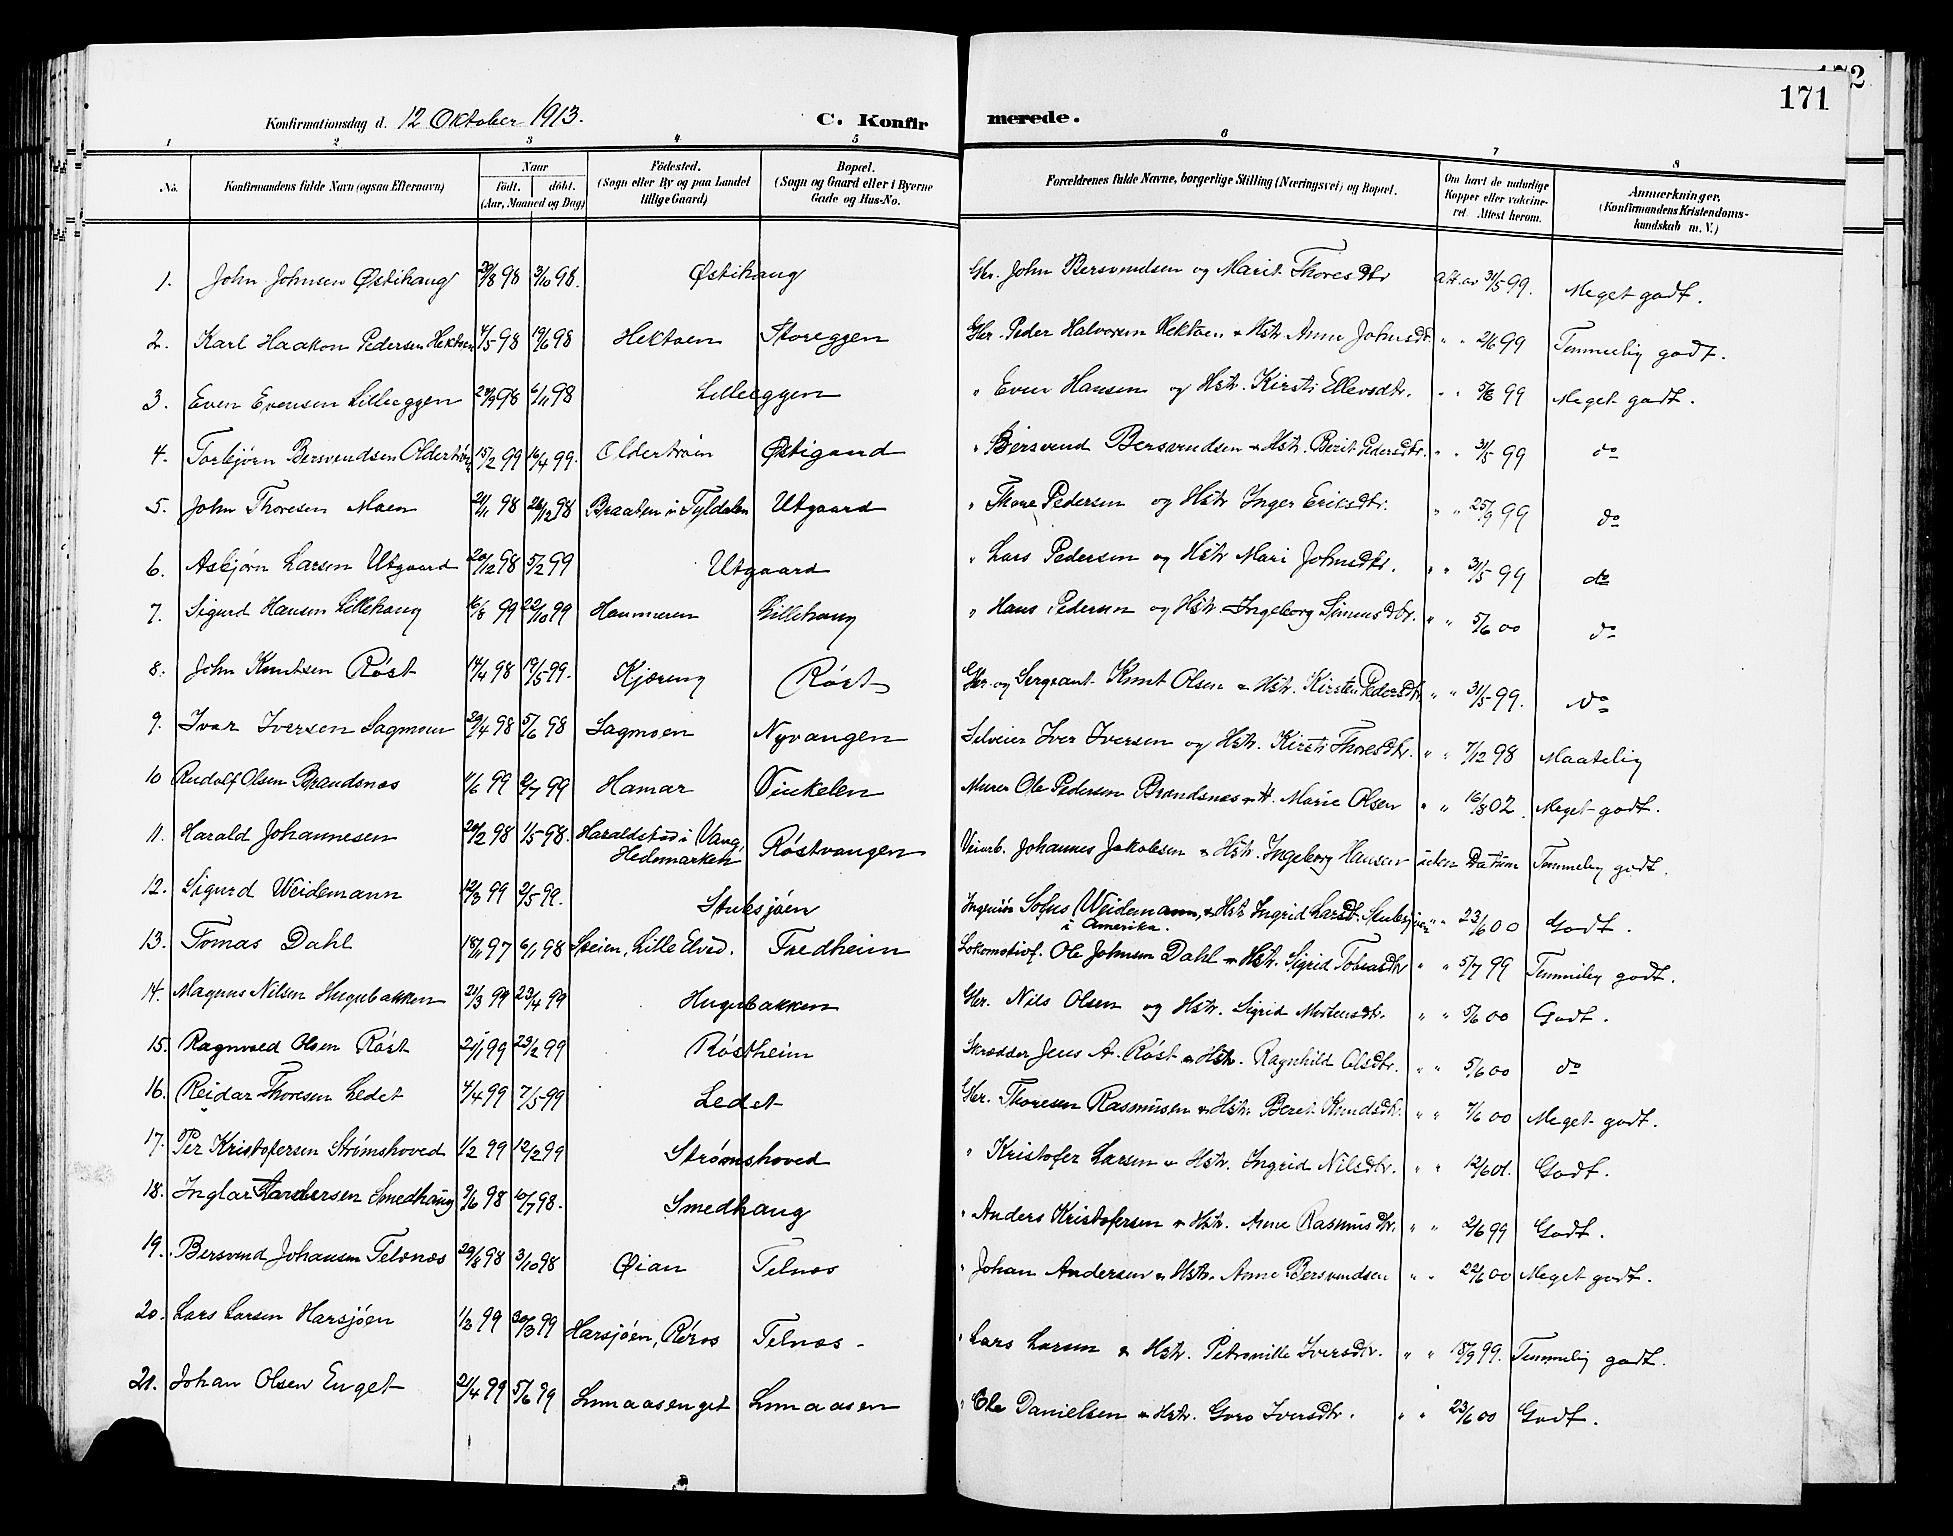 172
171
Konfirmationsdag d. 12 Oktober 1913. C. Konfirmerede.
1 2 3 4 5 6 7 8
No. Konfirmandens fulde Navn (ogsaa Efternavn) Naar født. døbt. (Aar, Maaned og Dag) Fødested. (Sogn eller By og paa Landet tillige Gaard) Bopæl. (Sogn og Gaard eller i Byerne Gade og Hus-No. Forældrenes fulde Navne, borgerlige Stilling (Næringsvei) og Bopæl. Om havt de naturlige Kopper eller vakcineret. Attest herom. Anmærkninger. (Konfirmandens Kristendomskundskab m. V.)
1. John Johnsen Østihaug 30/8 98 3/10 98. Østihaug Gbr. John Bersvendsen og Marit Thoresdtr Att. av 31/5 99. Meget godt.
2. Karl Haakon Pedersen Hektoen 4/5 98 19/6 98 Hektoen Storeggen Gbr. Peder Halvorsen Hektoen & Hstr. Anne Johnsdtr. " " 2/6 99 Temmelig godt.
3. Even Evensen Lilleeggen 6/11 98 Lilleeggen " Even Hansen og Hstr. Kirsti Ellevsdtr. " " 5/6 99 Meget godt.
4. Torbjørn Bersvendsen Oldertrøen 15/2 99 16/4 99. Oldertrøen Østigaard " Bersvend Bersvendsen & Hstr. Berit Pedersdtr. " " 31/5 99 do
5. John Thoresen Moen 21/11 98 26/12 98 Braaten i Tyldalen Utgaard " Thore Pedersen og Hstr Inger Eriksdtr. " " 25/9 99 do
6. Asbjørn Larsen Utgaard 20/12 98 5/2 99 Utgaard " Lars Pedersen og Hstr Mari Johnsdtr. " " 31/5 99 do
7. Sigurd Hansen Lillehaug 16/8 99 22/10 99 Hammeren Lillehaug " Hans Pedersen og Hstr Ingeborg Simensdtr. " " 5/6 00 do
8. John Knutsen Røst 14/4 98 19/5 99. Kjæreng Røst Gbr. og Sergeant Knut Olsen & Hstr. Kirsten Pedersdtr " " 31/5 99. do
9. Ivar Iversen Sagmoen 29/4 98 5/6 98 Sagmoen Nyvangen Selveier Iver Iversen og Hstr. Kirsti Thoresdtr. " " 7/12 98 Maatelig
10 Rudolf Olsen Brandsnes 4/6 99 2/7 99 Hamar Vinkelen Murer Ole Pedersen Brandsnes & H. Marie Olsen " " 16/8 02. Meget godt.
11. Harald Johannesen 20/2 98 1/5 98. Haraldstad i Vang, Hedemarken Røstvangen Veiarb. Johannes Jakobsen & Hstr. Ingeborg Hansen uten Datum Temmelig godt.
12. Sigurd Weidemann 12/3 99 2/5 99. Stubsjøen Ingeniør Sofus Weidemann, & Hstr Ingrid Larsdtr. Stubsjøen " " 23/6 00 Godt.
i Amerika.
13. Tomas Dahl 18/11 97 6/1 98 Steien, Lille Elved. Fredheim Lokomotivf. Ole Johnsen Dahl & Hstr. Sigrid Tobiasdtr " " 5/7 99 Temmelig godt.
14. Magnus Nilsen Hugubakken 21/3 99 23/4 99 Hugubakken Gbr. Nils Olsen og Hstr. Sigrid Mortensdtr. " " 5/6 00 Godt.
15. Ragnvald Olsen Røst 21/1 99 23/2 99 Røstheim Skrædder Jens A. Røst & Hstr. Ragnhild Olsdtr. " " 5/6 00 do
16. Reidar Thoresen Ledet 4/4 99 7/5 99 Ledet Gbr. Thoresen Rasmusen & Hstr. Beret Knudsdtr. " " 7/6 00 Meget godt.
17. Per Kristofersen Strømshoved 1/2 99 12/2 99 Strømshoved " Kristofer Larsen & Hstr. Ingrid Nilsdtr. " " 12/6 01. Godt.
18. Andersen Smedhaug 9/6 98 10/7 98. Smedhaug " Anders Kristofersen & Hstr. Anne Rasmusdtr. " " 2/6 99 Godt.
19. Bersvend Johansen Telnæs 29/8 98 3/10 98 Øian Telnæs " Johan Andersen & Hstr. Anne Bersvendsen " " 22/6 00 Meget godt.
20. Lars Larsen Harsjøen 1/3 99 30/3 99 Harsjøen, Røros Telnæs " Lars Larsen & Hstr. Petronille Iversdtr. " " 18/9 99. Temmelig godt.
21. Johan Olsen Enget 21/4 99 5/6 99 Lomaasenget Lomaasen " Ole Danielsen & Hstr. Goro Iversdtr. " " 23/6 00 Godt.